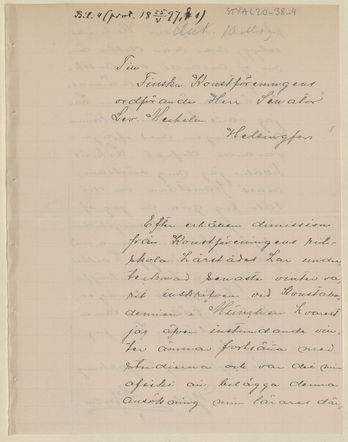 Bil. 4 (prot. 18 25/5 97, § 1)
STYAL20-38-4
Till
Finska Konstföreningens
ordförande Herr Senator
Leo Mechelin
Helsingfors
Efter erhållen dimission
från Konstföreningens rit-
skola härstädes har under
tecknad senaste vinter va-
rit inskrifven vid Konstaka-
demien i München hvarest
jag äfven instundande vin-
ter ämnar fortsätta med
studierna och var det min
afsikt att belägga denna
ansökning min lärares där-